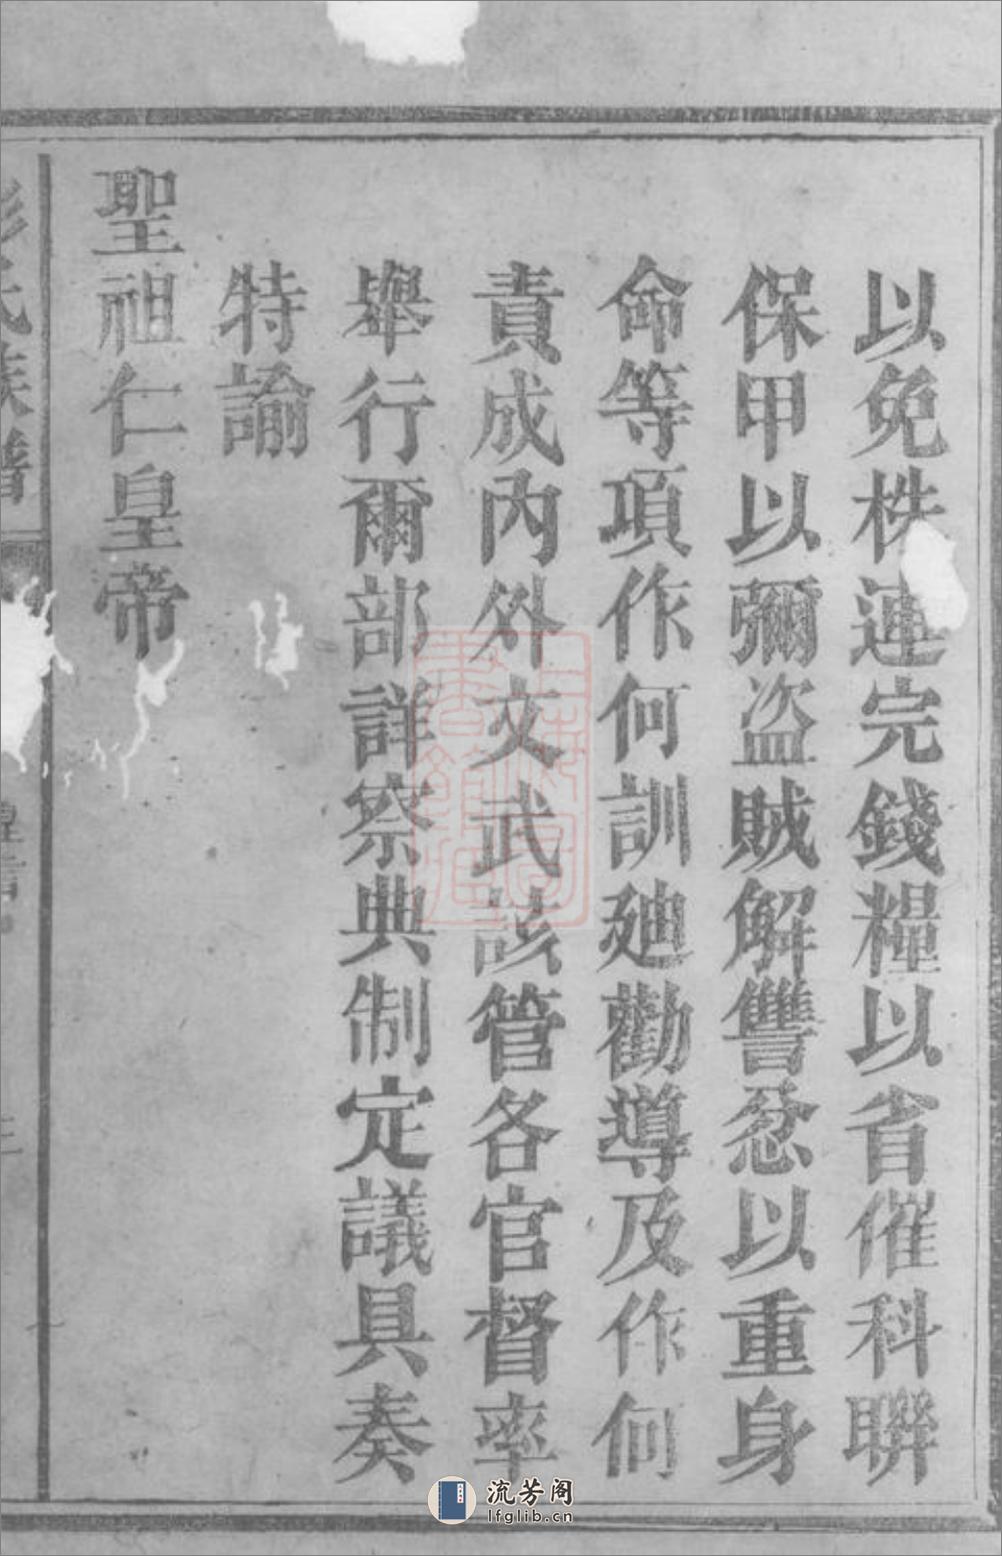 以免株連完錢糧以省催科聯
保甲以彌盜賊解讐忿以重身
命等項作何訓廸勸導及作何
責成內外文武該管各官督率
舉行爾部詳察典制定議具奏
特諭
聖祖仁皇帝
氏族譜
流芳阁
lfglib.cn